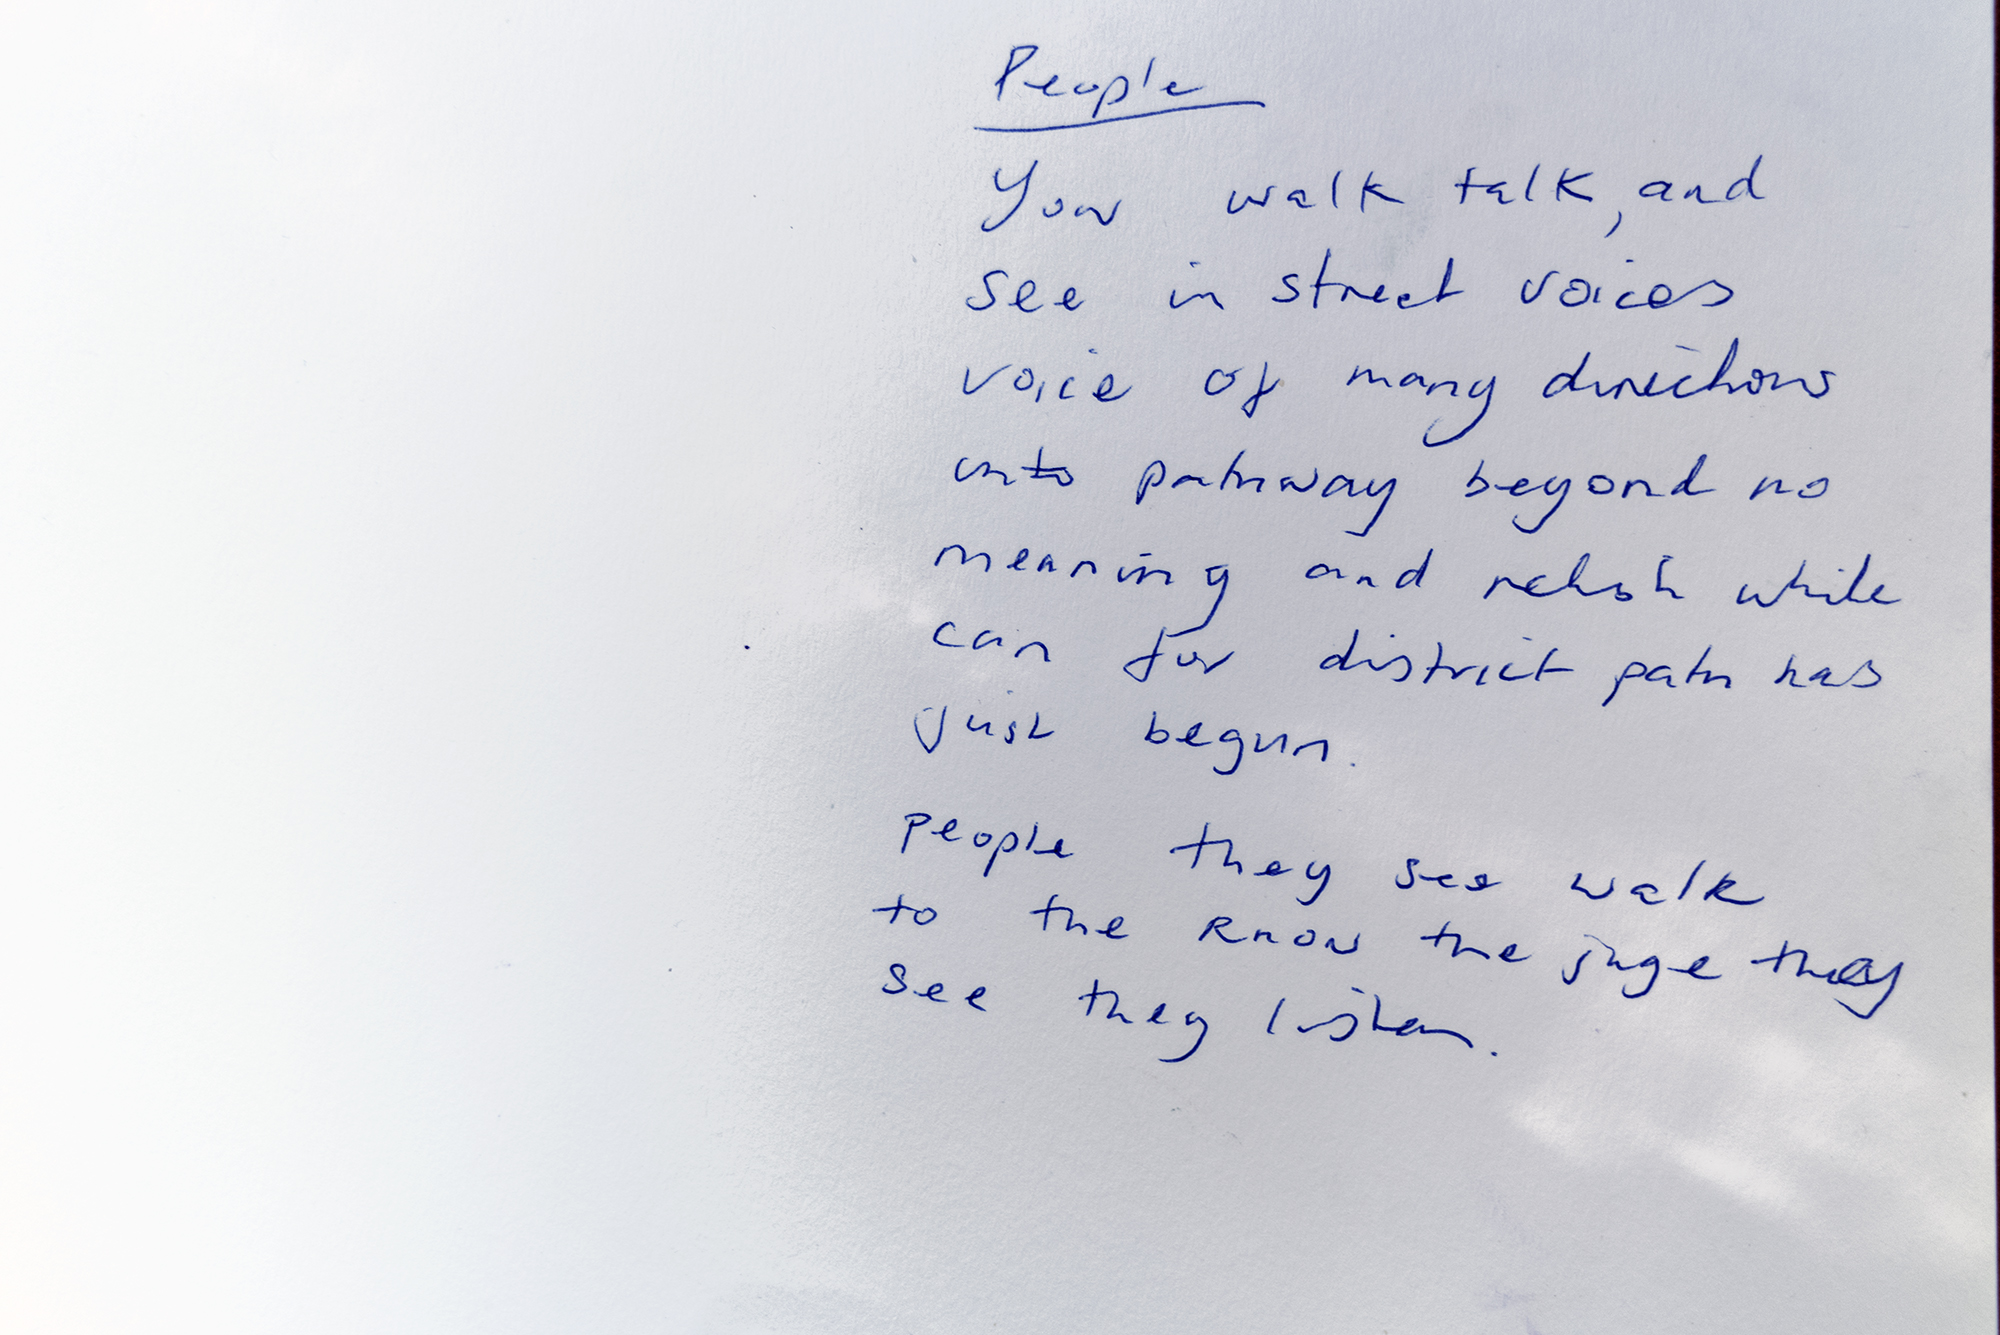 People
You walk talk, and
see in street voices
voice of many directions
into pathway beyond no
meaning and relish while
can for district path has
just begun.
People they see walk
to the know the juge they
see they listen.